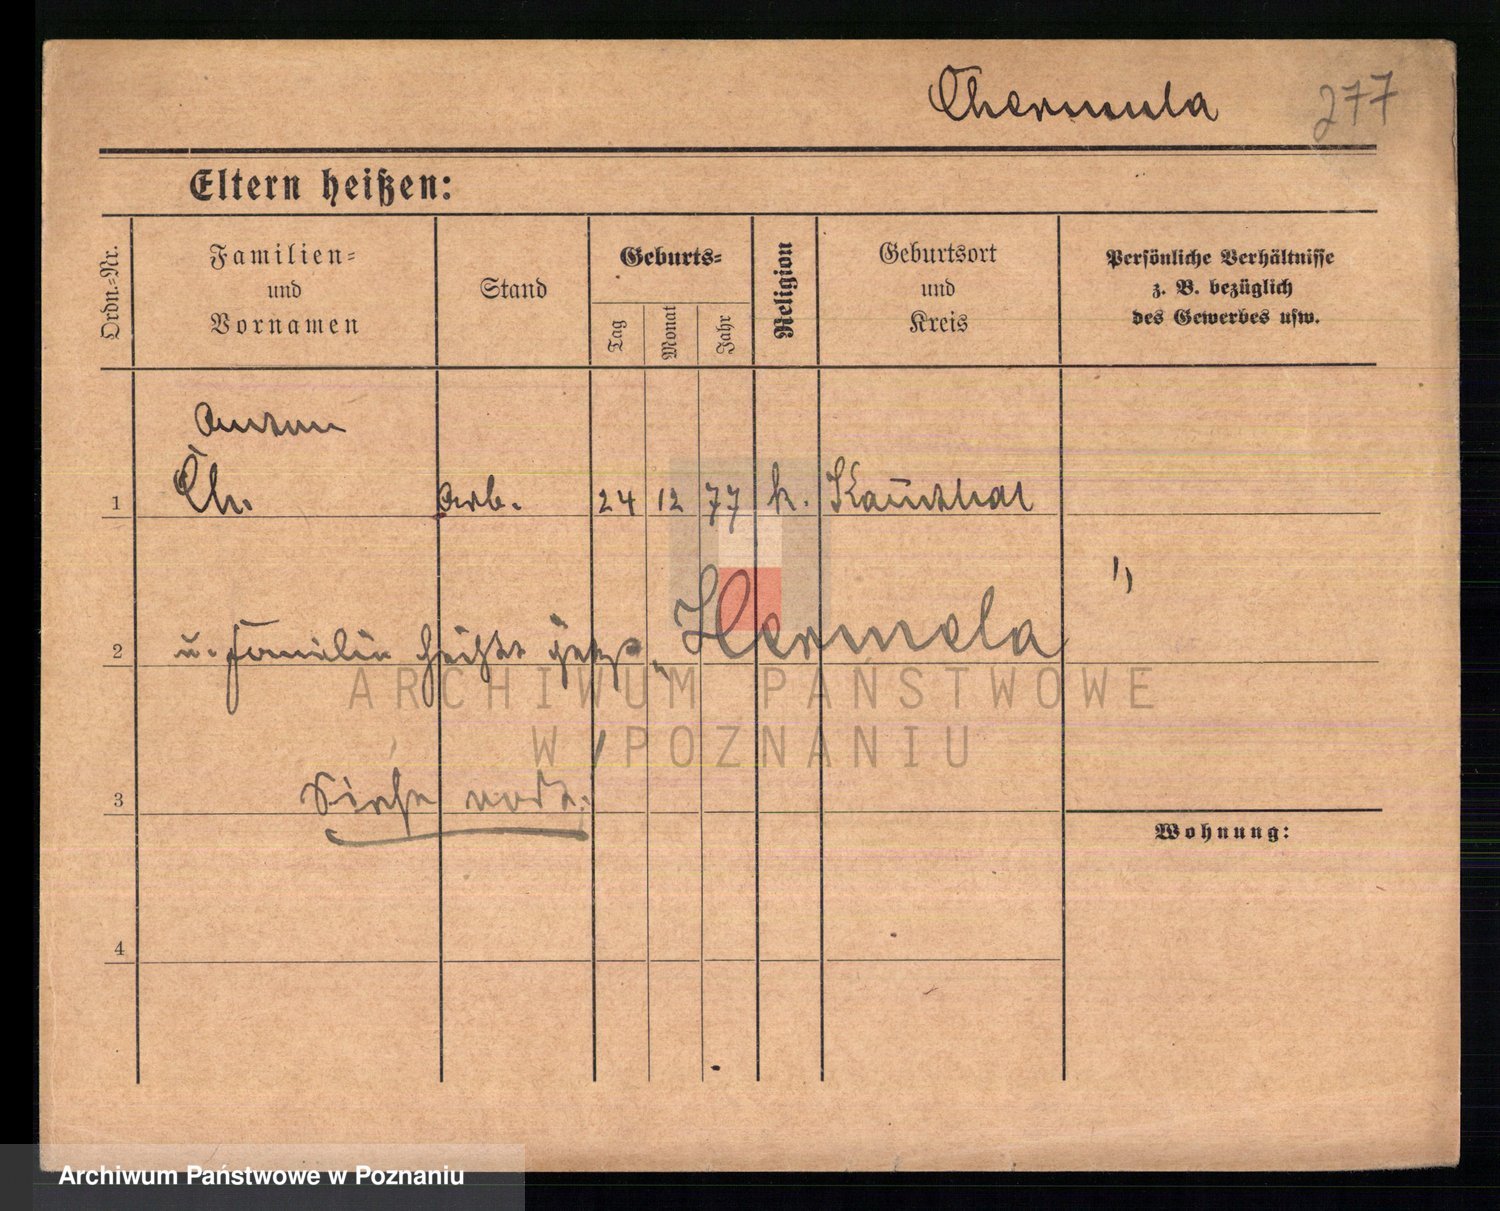 Chermula 277
Eltern heißen:
Ordn.-Nr.
Familien-
und
Vornamen
Stand
Geburts-
Tag
Monat
Jahr
Religion
Geburtsort
und
Kreis
Persönliche Verhältnisse
z. B. bezüglich
des Gewerbes usw.
Anton
1 Ch. Arb. 24 12 77 k.
2 u. Familie heißt jetzt Hermela
ARCHIWUM PAŃSTWOWE
W POZNANIU
3 Siehe dort.
Wohnung:
4
Archiwum Państwowe w Poznaniu